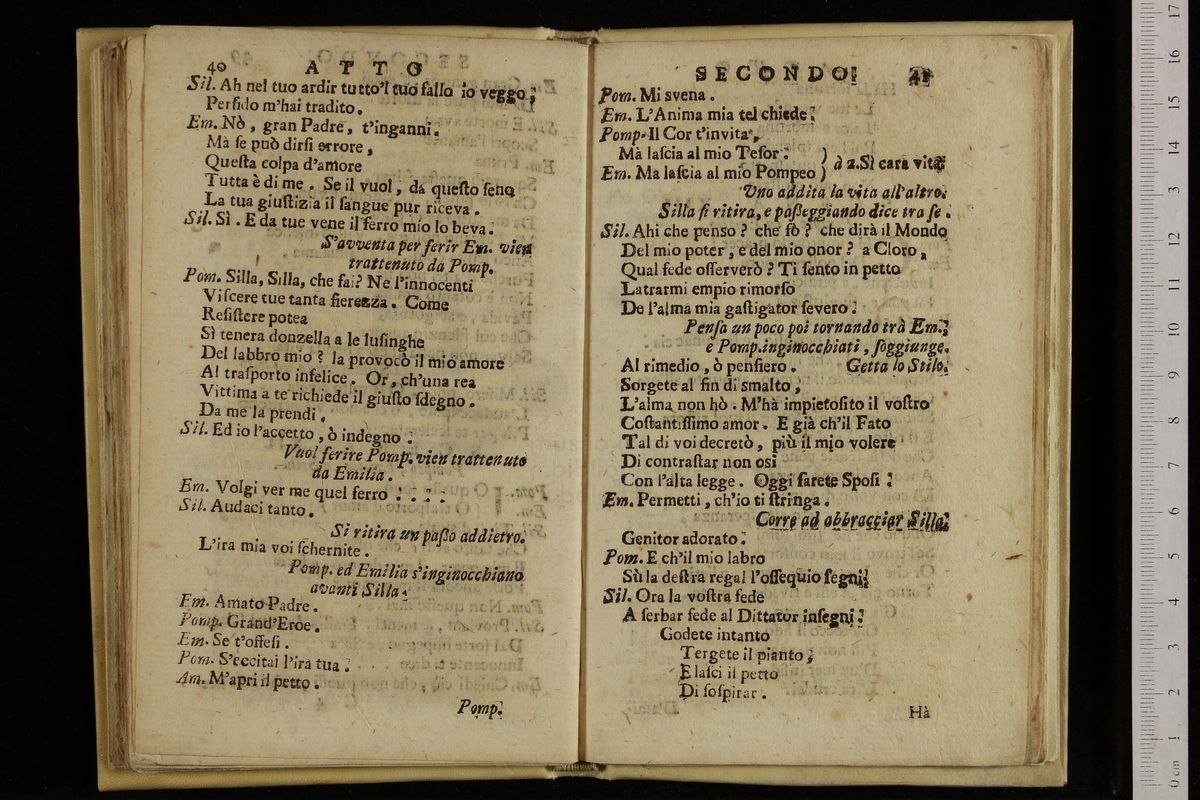 40 ATTO
Sil. Ah nel tuo ardir tutto'l tuo fallo io veggo;
Perfido m'hai tradito.
Em. Nò, gran Padre, t'inganni.
Mà ſe può dirſi errore,
Queſta colpa d'amore
Tutta è di me. Se il vuol, da queſto ſeno
La tua giuſtizia il ſangue pur riceva.
Sil. Sì. E da tue vene il ferro mio lo beva.
S'avventa per ferir Em. vien
trattenuto da Pomp.
Pom. Silla, Silla, che fai? Ne l'innocenti
Viſcere tue tanta fierezza. Come
Reſiſtere potea
Sì tenera donzella a le luſinghe
Del labbro mio? la provocò il mio amore
Al traſporto infelice. Or, ch'una rea
Vittima a te richiede il giuſto ſdegno.
Da me la prendi.
Sil. Ed io l'accetto, ò indegno.
Vuol ferire Pomp. vien trattenuto
da Emilia.
Em. Volgi ver me quel ferro . . . .
Sil. Audaci tanto.
Si ritira un paßo addietro.
L'ira mia voi ſchernite.
Pomp. ed Emilia s'inginocchiano
avanti Silla.
Em. Amato Padre.
Pomp. Grand'Eroe.
Em. Se t'offeſi.
Pom. S'eccitai l'ira tua.
Am. M'apri il petto.
Pomp.
SECONDO. 41
Pom. Mi svena.
Em. L'Anima mia tel chiede.
Pomp. Il Cor t'invita,
Mà laſcia al mio Teſor. )
Em. Ma laſcia al mio Pompeo ) à 2. Sì cara vita.
Uno addita la vita all'altro.
Silla ſi ritira, e paßeggiando dice tra ſe.
Sil. Ahi che penso? che fò? che dirà il Mondo
Del mio poter, e del mio onor? a Cloro,
Qual fede oſſerverò? Ti ſento in petto
Latrarmi empio rimorſo
De l'alma mia gaſtigator ſevero.
Penſa un poco poi tornando trà Em.
e Pomp. inginocchiati, ſoggiunge.
Al rimedio, ò penſiero. Getta lo Stilo.
Sorgete al fin di smalto,
L'alma non hò. M'hà impietoſito il voſtro
Coſtantiſſimo amor. E già ch'il Fato
Tal di voi decretò, più il mio volere
Di contraſtar non osi
Con l'alta legge. Oggi ſarete Spoſi.
Em. Permetti, ch'io ti ſtringa.
Corre ad abbracciar Silla.
Genitor adorato.
Pom. E ch'il mio labro
Sù la deſtra regal l'oſſequio ſegni.
Sil. Ora la voſtra fede
A ſerbar fede al Dittator inſegni.
Godete intanto
Tergete il pianto;
E laſci il petto
Di ſoſpirar.
Hà